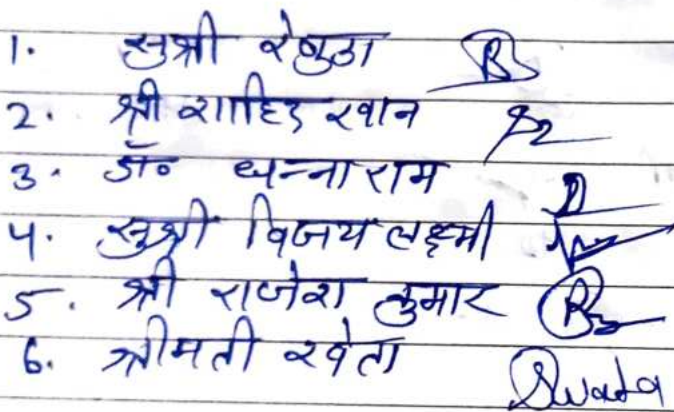 1. सुश्री रेणुका
2. श्री शाहिद खान
3. डॉ० धन्नाराम
4. सुश्री विजय लक्ष्मी
5. श्री राजेश कुमार
6. श्रीमती श्वेता Swata